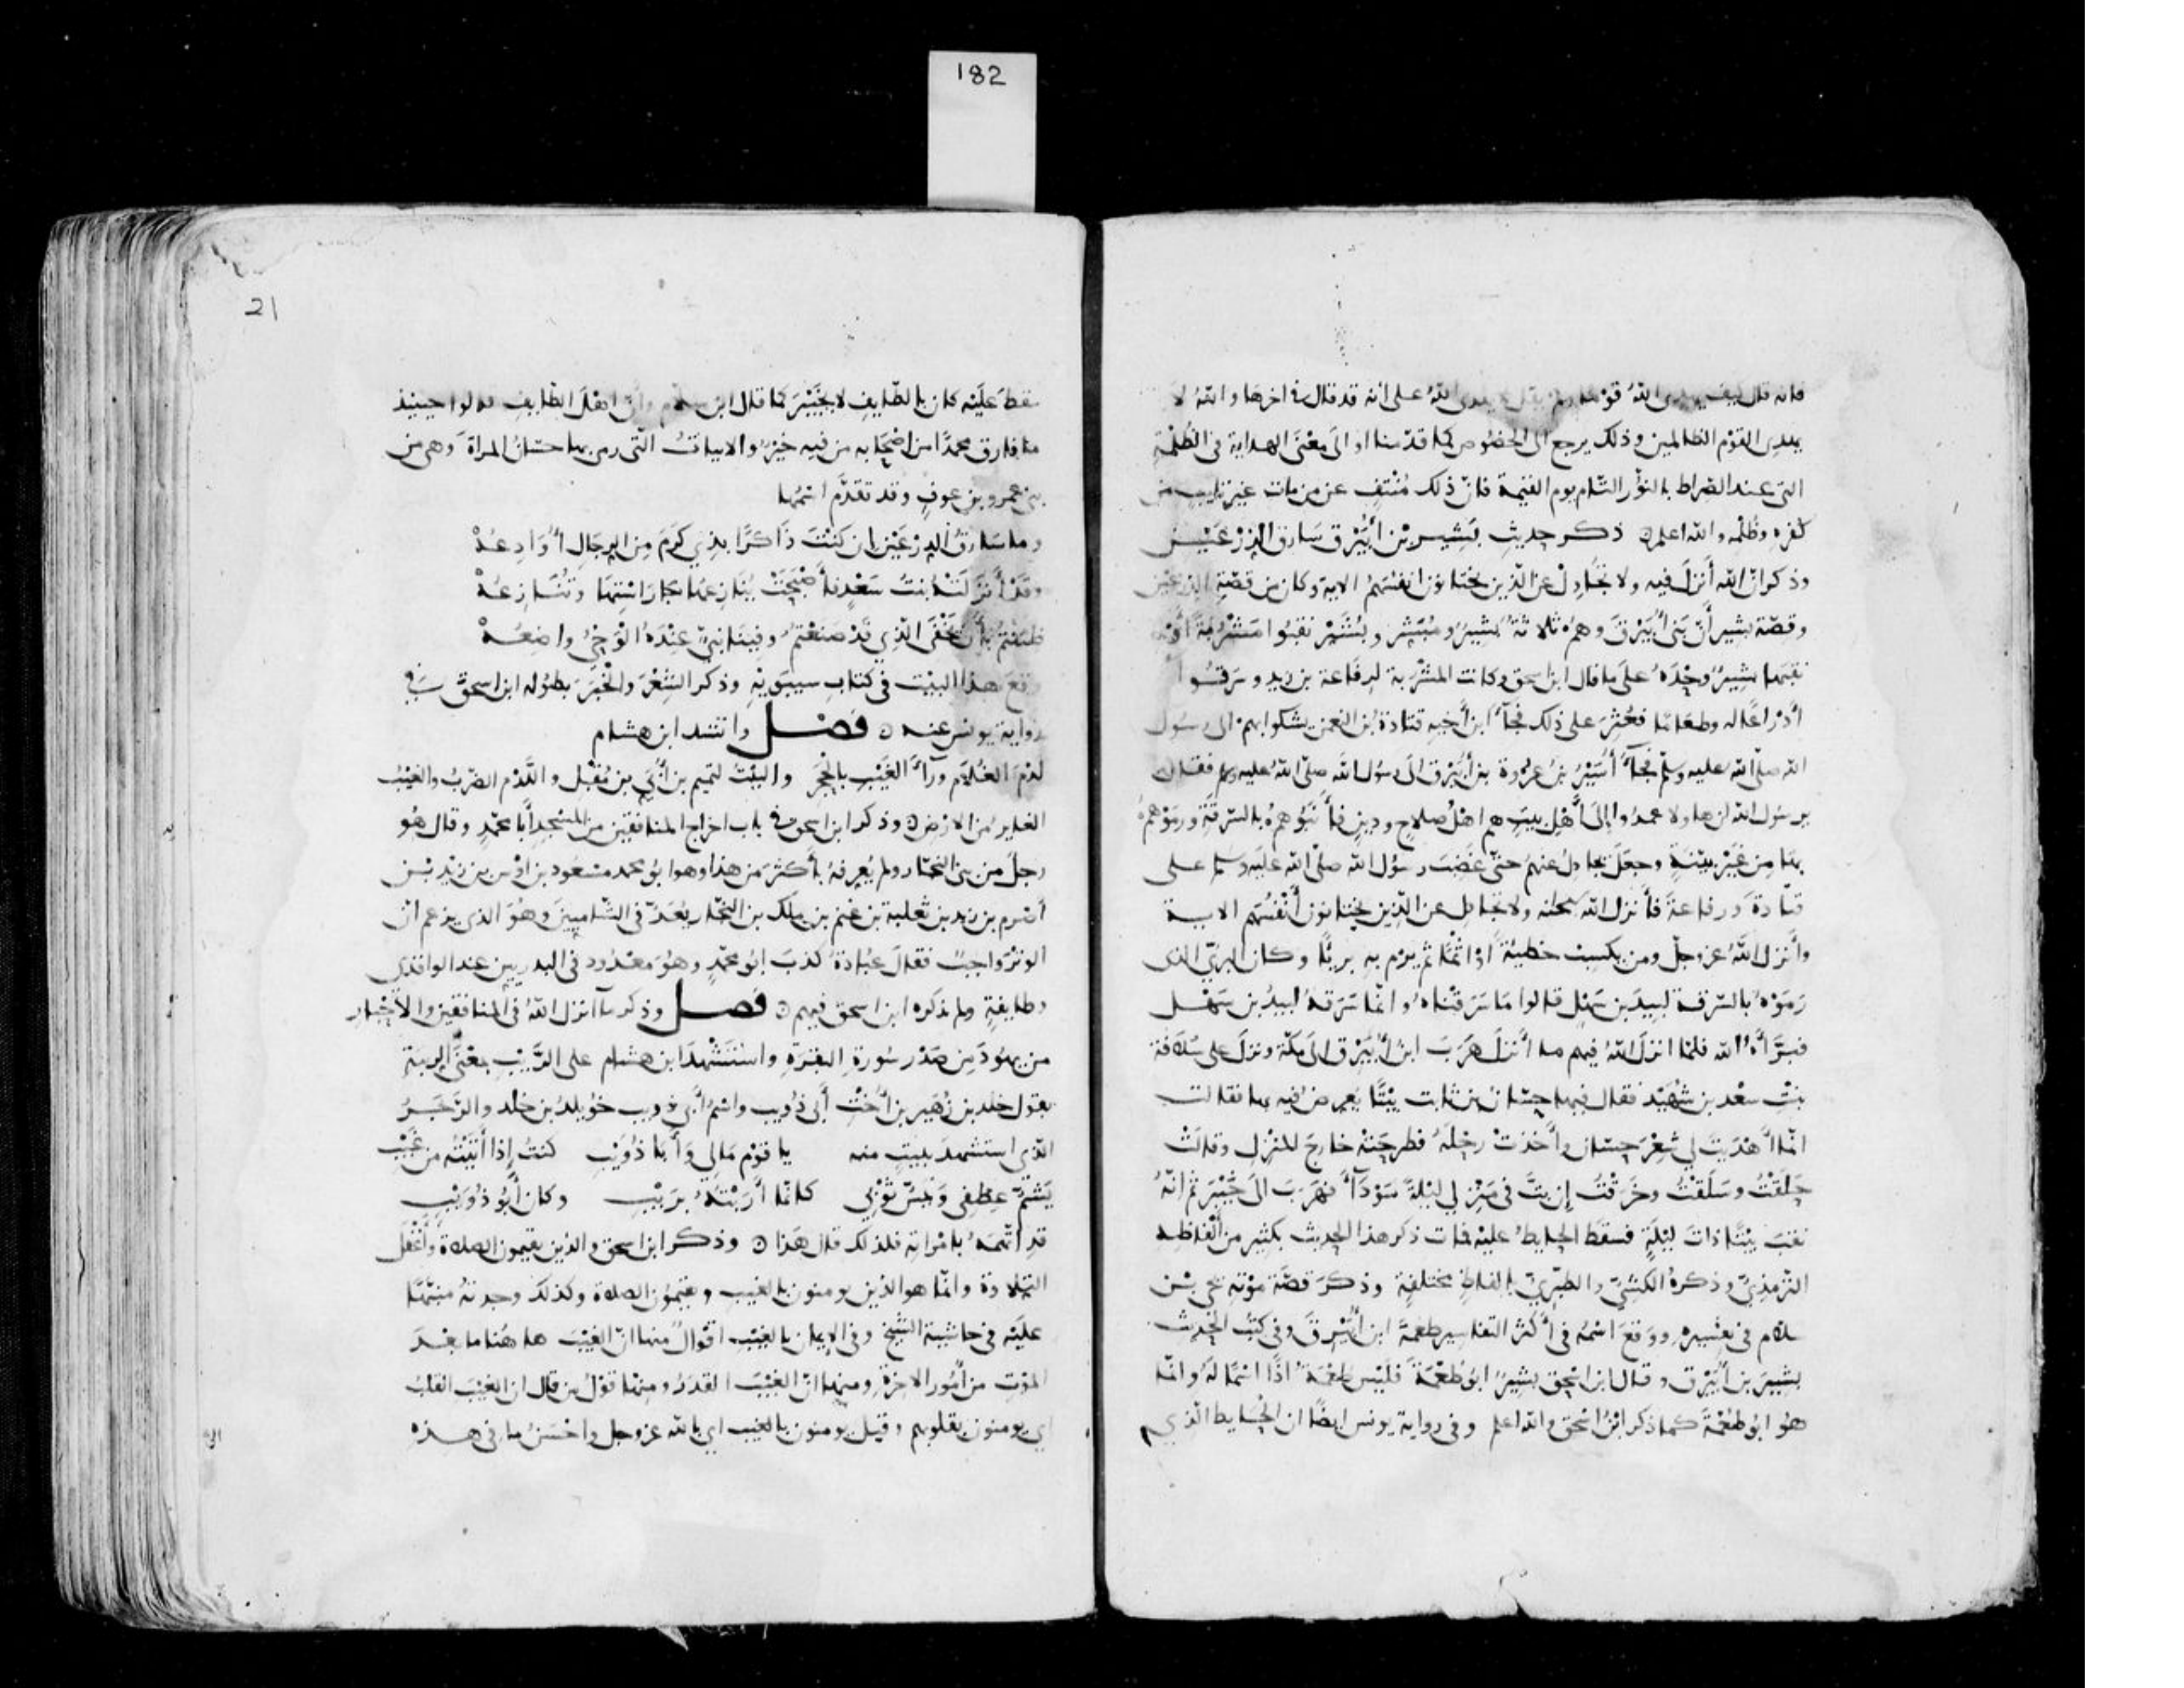 182
فانه قال كيف يهدى الله قوما ولم يقل لا يهدى الله على انه قد قال فى اخرها والله لا
يهدى القوم الظالمين وذلك يرجع الى الخصوص كما قدمنا او الى معنى الهداية فى الظلمة
التى عند الصراط بالنور التام يوم القيمة فان ذلك منتف عن من مات غير تايب من
كفره وظلمه والله اعلم ذكر حديث بشير بن أبيرق سارق الدرعين
وذكر ان الله أنزل فيه ولا تجادل عن الذين يختانون انفسهم الاية وكان من قصة الدرعين
وقصة بشير أن بنى أبيرق وهم ثلاثة بشير ومبشر وبشر نقبوا مشربة أو
نقبها بشير وحده على ما قال ابن اسحق وكانت المشربة لرفاعة بن زيد وسرقوا
أدراعا له وطعاما فعثر على ذلك فجآ ابن أخيه قتادة بن النعمن يشكوا بهم الى رسول
الله صلى الله عليه وسلم فجآ أسير بن عروة بن أبيرق الى رسول الله صلى الله عليه وسلم فقال
يرسول الله ان هاولا عمدوا إلى أهل بيت هم اهل صلاح ودين فأبنوهم بالسرقة ورموهم
بها من غير بينة وجعل يجادل عنهم حتى غضب رسول الله صلى الله عليه وسلم على
قتادة ورفاعة فأنزل الله سبحانه ولا تجادل عن الذين يختانون أنفسهم الاية
وأنزل الله عز وجل ومن يكسب خطيئة أو اثما ثم يرم به بريئا وكان البرى الذى
رموه بالسرقة لبيد بن سهل قالوا ما سرقناه وانما سرقه لبيد بن سهل
فبرأه الله فلما انزل الله فيهم ما أنزل هرب ابن أبيرق الى مكة ونزل على سلافة
بنت سعد بن شهيد فقال فيها حسان بن ثابت بيتا يعرض فيه بها فقالت
انما أهديت لى شعر حسان وأخذت رحله فطرحته خارج المنزل وقالت
حلقت وسلقت وخرقت إن بت فى منزلى ليلة سودآ فهرب الى خيبر ثم انه
نقب بيتا ذات ليلة فسقط الحايط عليه فمات ذكر هذا الحديث بكثير من ألفاظه
الترمذى وذكره الكشى والطبرى بالفاظ مختلفة وذكر قصة موته يحى بن
سلام فى تفسيره ووقع اسمه فى أكثر التفاسير طعمة ابن أبيرق وفى كتب الحديث
بشير بن أبيرق وقال ابن اسحق بشير ابو طعمة فليس طعمة اذا اسما له وانما
هو ابو طعمة كما ذكر ابن اسحق والله اعلم وفى رواية يونس ايضا ان الحايط الذي
21
سقط عليه كان بالطايف لا بخيبر كما قال ابن سلام وأن اهل الطايف قالوا حينيذ
ما فارق محمدا من اصحابه من فيه خير والابيات التى رمى بها حسان المراة وهى من
بنى عمرو بن عوف وقد تقدم اسمها
وما سارق الدرعين ان كنت ذاكرا بذي كرم من الرجال أوادعه
وقد أنزلته بنت سعد فأصبحت ينازعها جار استها وتنازعه
ظننتم بأن يخفى الذي قد صنعتم وفينا نبى عنده الوحى واضعه
وقع هذا البيت فى كتاب سيبويه وذكر الشعر والخبر بطوله ابن اسحق فى
رواية يونس عنه فصل وانشد ابن هشام
لدم الغلام ورآ الغيب بالحجر والبيت لتميم بن أبى بن مقبل واللدم الضرب والغيب
الغاير من الارض وذكر ابن اسحق فى باب اخراج المنافقين من المسجد أبا محمد وقال هو
رجل من بنى النجار ولم يعرفه بأكثر من هذا وهو ابو محمد مسعود بن اوس بن زيد بن
أصرم بن زيد بن ثعلبة بن غنم بن ملك بن النجار يعد فى الشاميين وهو الذى يزعم ان
الوتر واجب فقال عبادة كذب ابو محمد وهو معدود فى البدريين عند الواقدى
وطايفة ولم يذكره ابن اسحق فيهم فصل وذكر ما انزل الله فى المنافقين والاحبار
من يهود من صدر سورة البقرة واستشهد ابن هشام على الريب بمعنى الريبة
بقول خلد بن زهير بن أخت أبى ذويب واسم أبى ذويب خويلد بن خلد والرجز
الذى استشهد ببيت منه يا قوم مالى وأبا ذويب كنت إذا أتيته من غيب
يشم عطفى ويبس ثوبى كانما أربته بريب وكان أبو ذويب
قد اتهمه بامراته فلذلك قال هذا وذكر ابن اسحق والذين يقيمون الصلاة وأغفل
التلاوة وانما هو الذين يومنون بالغيب ويقيمون الصلاة وكذلك وجدته منبها
عليه فى حاشية الشيخ وفى الايمان بالغيب اقوال منها ان الغيب هاهنا ما بعد
الموت من أمور الاخرة ومنها ان الغيب القدر ومنها قول من قال ان الغيب القلب
اي يومنون بقلوبهم وقيل يومنون بالغيب اي بالله عز وجل واحسن ما فى هذه